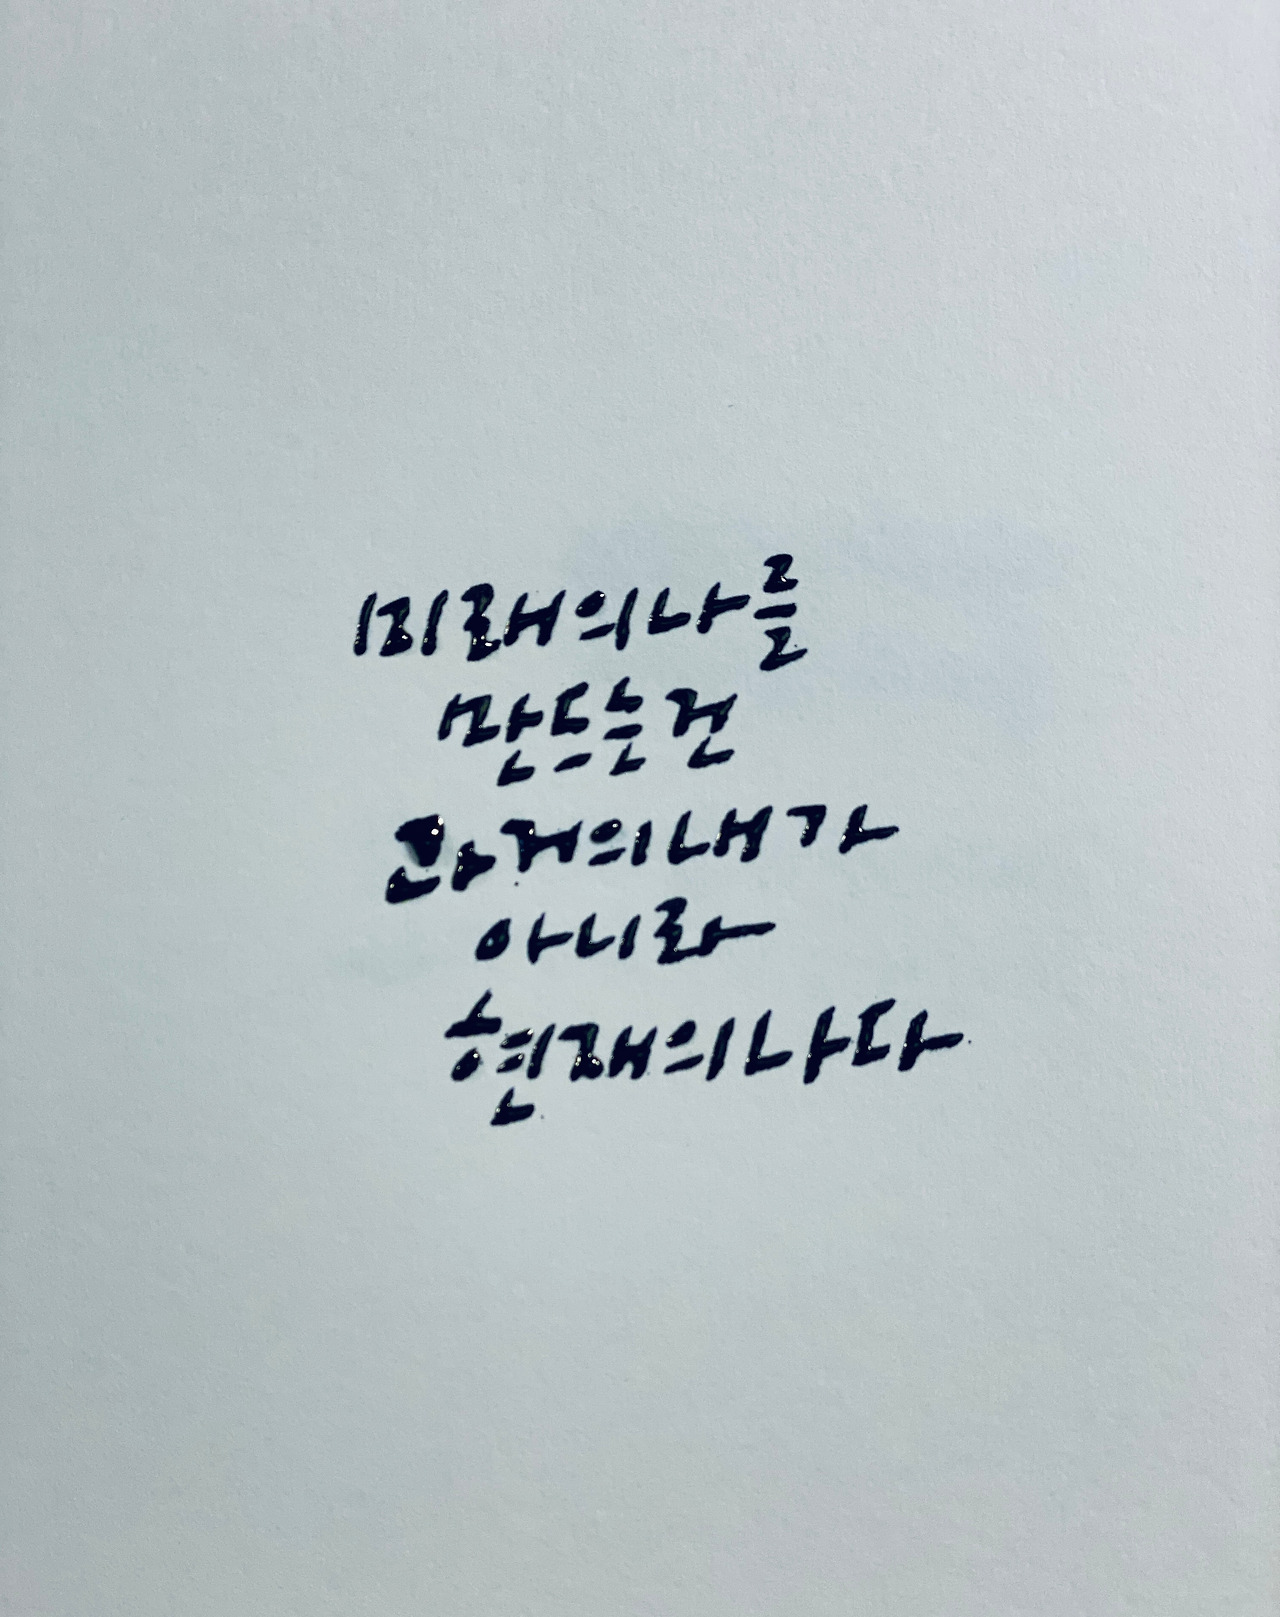 미래의 나를
만드는 건
과거의 내가
아니라
현재의 나다